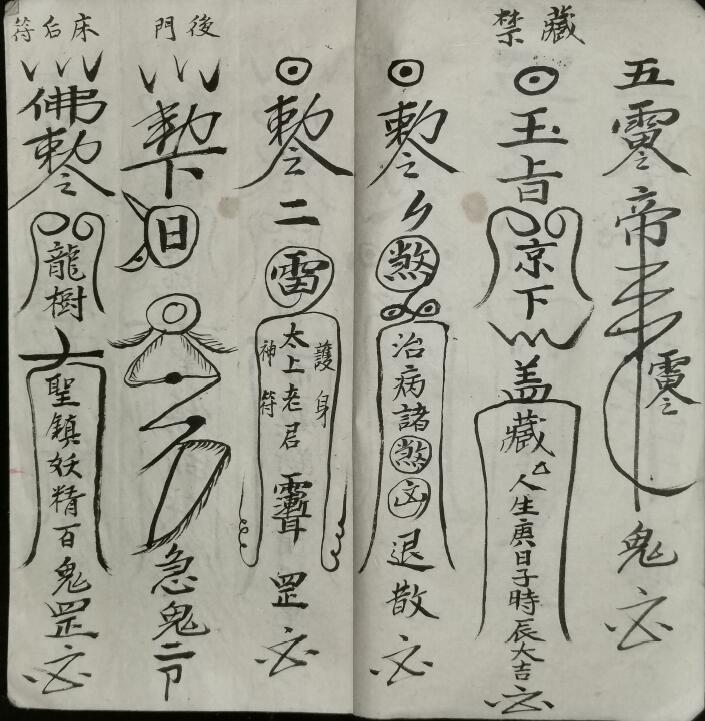 五雷令帝雷令鬼
藏禁
玉旨京下盖藏人生庚日子時辰大吉
敕令煞治病諸煞凶退散
敕令二雷
護身
太上老君
神符
罡
後門
敕下日急鬼二
床后符
佛敕令龍樹聖鎮妖精百鬼罡